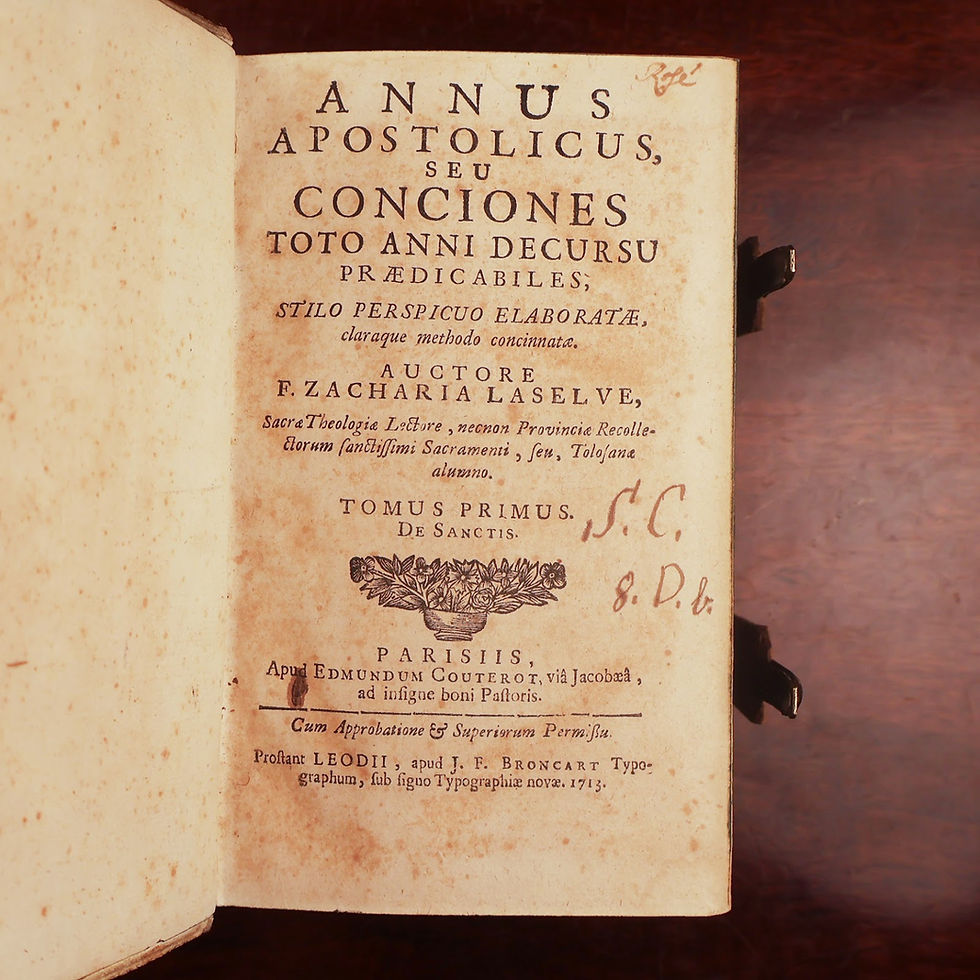 Rosé
ANNUS
APOSTOLICUS,
SEU
CONCIONES
TOTO ANNI DECURSU
PRÆDICABILES;
STILO PERSPICUO ELABORATÆ,
claraque methodo concinnatæ.
AUCTORE
F. ZACHARIA LASELVE,
Sacræ Theologiæ Lectore, necnon Provinciæ Recolle-
ctorum ſanctiſſimi Sacramenti, ſeu, Toloſanæ
alumno.
TOMUS PRIMUS.
DE SANCTIS.
S. C.
8. D. b.
PARISIIS,
Apud EDMUNDUM COUTEROT, viâ Jacobæâ,
ad inſigne boni Paſtoris.
Cum Approbatione & Superiorum Permiſſu.
Proſtant LEODII, apud J. F. BRONCART Typo-
graphum, ſub ſigno Typographiæ novæ. 1713.